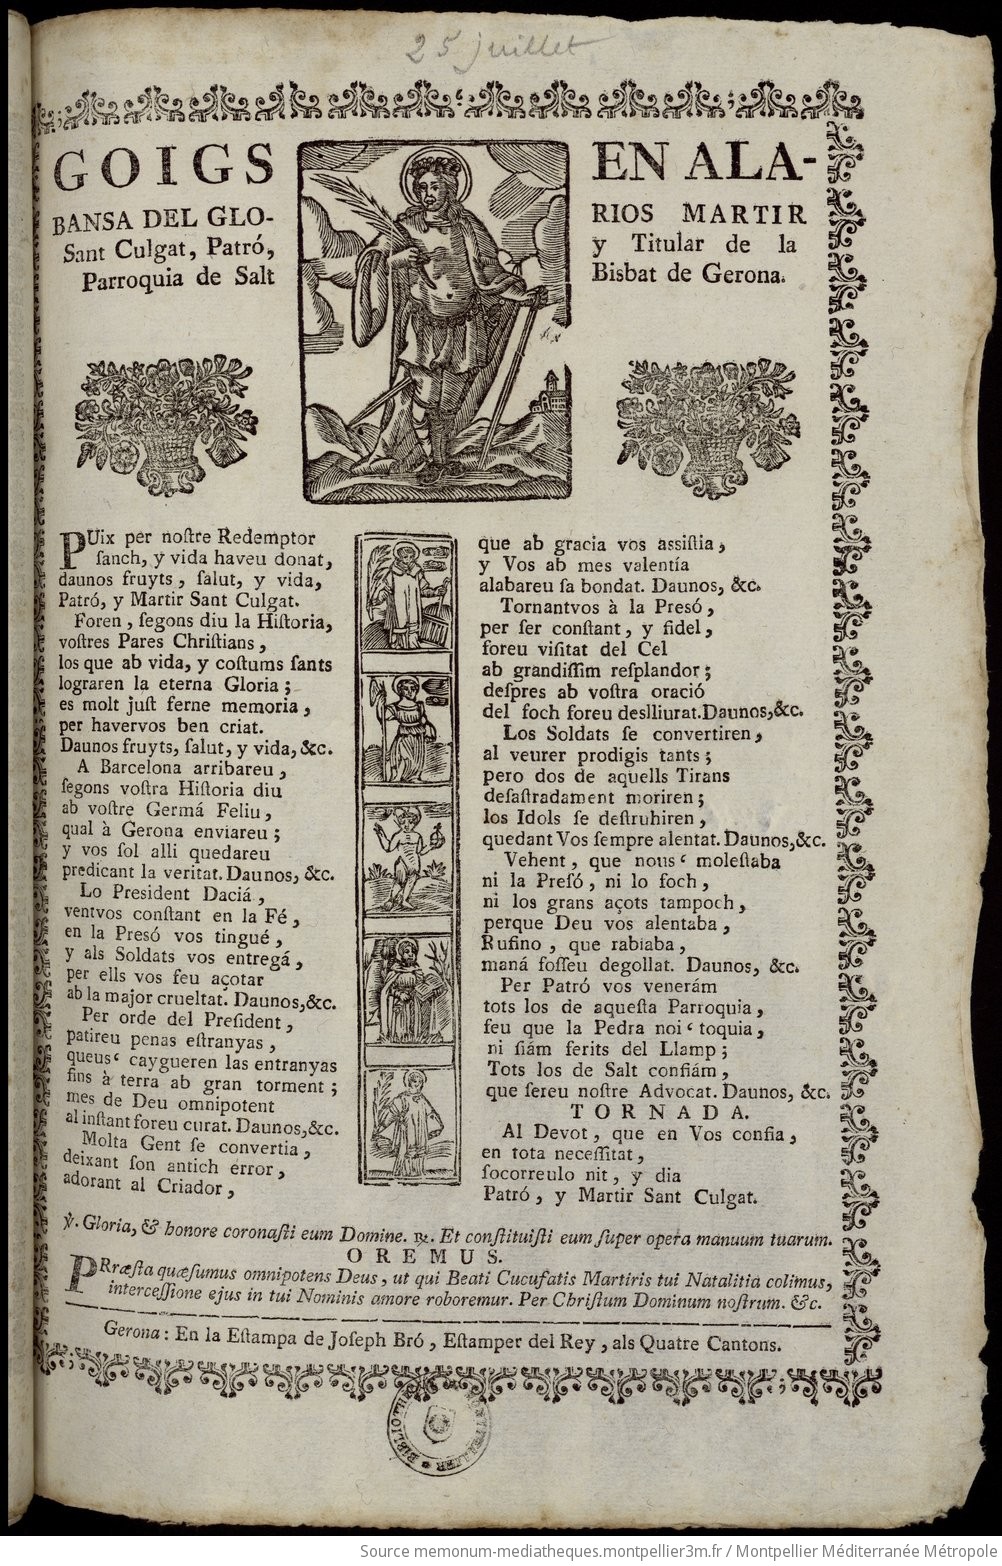 25 juillet
GOIGS EN ALA-
BANSA DEL GLO- RIOS MARTIR
Sant Culgat, Patró, y Titular de la
Parroquia de Salt Bisbat de Gerona.
PUix per noſtre Redemptor
ſanch, y vida haveu donat,
daunos fruyts, ſalut, y vida,
Patró, y Martir Sant Culgat.
Foren, ſegons diu la Hiſtoria,
voſtres Pares Chriſtians,
los que ab vida, y coſtums ſants
lograren la eterna Gloria;
es molt juſt ferne memoria,
per havervos ben criat.
Daunos fruyts, ſalut, y vida, &c.
A Barcelona arribareu,
ſegons voſtra Hiſtoria diu
ab voſtre Germá Feliu,
qual à Gerona enviareu;
y vos ſol alli quedareu
predicant la veritat. Daunos, &c.
Lo President Daciá,
ventvos conſtant en la Fé,
en la Presó vos tingué,
y als Soldats vos entregá,
per ells vos feu açotar
ab la major crueltat. Daunos, &c.
Per orde del Preſident,
patireu penas eſtranyas,
queusʿ caygueren las entranyas
fins à terra ab gran torment;
mes de Deu omnipotent
al inſtant foreu curat. Daunos, &c.
Molta Gent ſe convertia,
deixant ſon antich error,
adorant al Criador,
que ab gracia vos assiſtia,
y Vos ab mes valentía
alabareu ſa bondat. Daunos, &c.
Tornantvos à la Presó,
per ſer conſtant, y fidel,
foreu viſitat del Cel
ab grandiſſim reſplandor;
deſpres ab voſtra oració
del foch foreu deslliurat. Daunos, &c.
Los Soldats ſe convertiren,
al veurer prodigis tants;
pero dos de aquells Tirans
deſaſtradament moriren;
los Idols ſe deſtruhiren,
quedant Vos ſempre alentat. Daunos, &c.
Vehent, que nousʿ moleſtaba
ni la Preſó, ni lo foch,
ni los grans açots tampoch,
perque Deu vos alentaba,
Rufino, que rabiaba,
maná foſſeu degollat. Daunos, &c.
Per Patró vos venerám
tots los de aqueſta Parroquia,
feu que la Pedra noiʿ toquia,
ni ſiám ferits del Llamp;
Tots los de Salt confiám,
que ſereu noſtre Advocat. Daunos, &c.
TORNADA.
Al Devot, que en Vos confia,
en tota neceſſitat,
ſocorreulo nit, y dia
Patró, y Martir Sant Culgat.
℣. Gloria, & honore coronaſti eum Domine. ℞. Et conſtituiſti eum ſuper opera manuum tuarum.
OREMUS.
PRræſta quæſumus omnipotens Deus, ut qui Beati Cucufatis Martiris tui Natalitia colimus,
interceſſione ejus in tui Nominis amore roboremur. Per Chriſtum Dominum noſtrum. &c.
Gerona: En la Eſtampa de Joſeph Bró, Eſtamper del Rey, als Quatre Cantons.
Source memonum-mediatheques.montpellier3m.fr / Montpellier Méditerranée Métropole